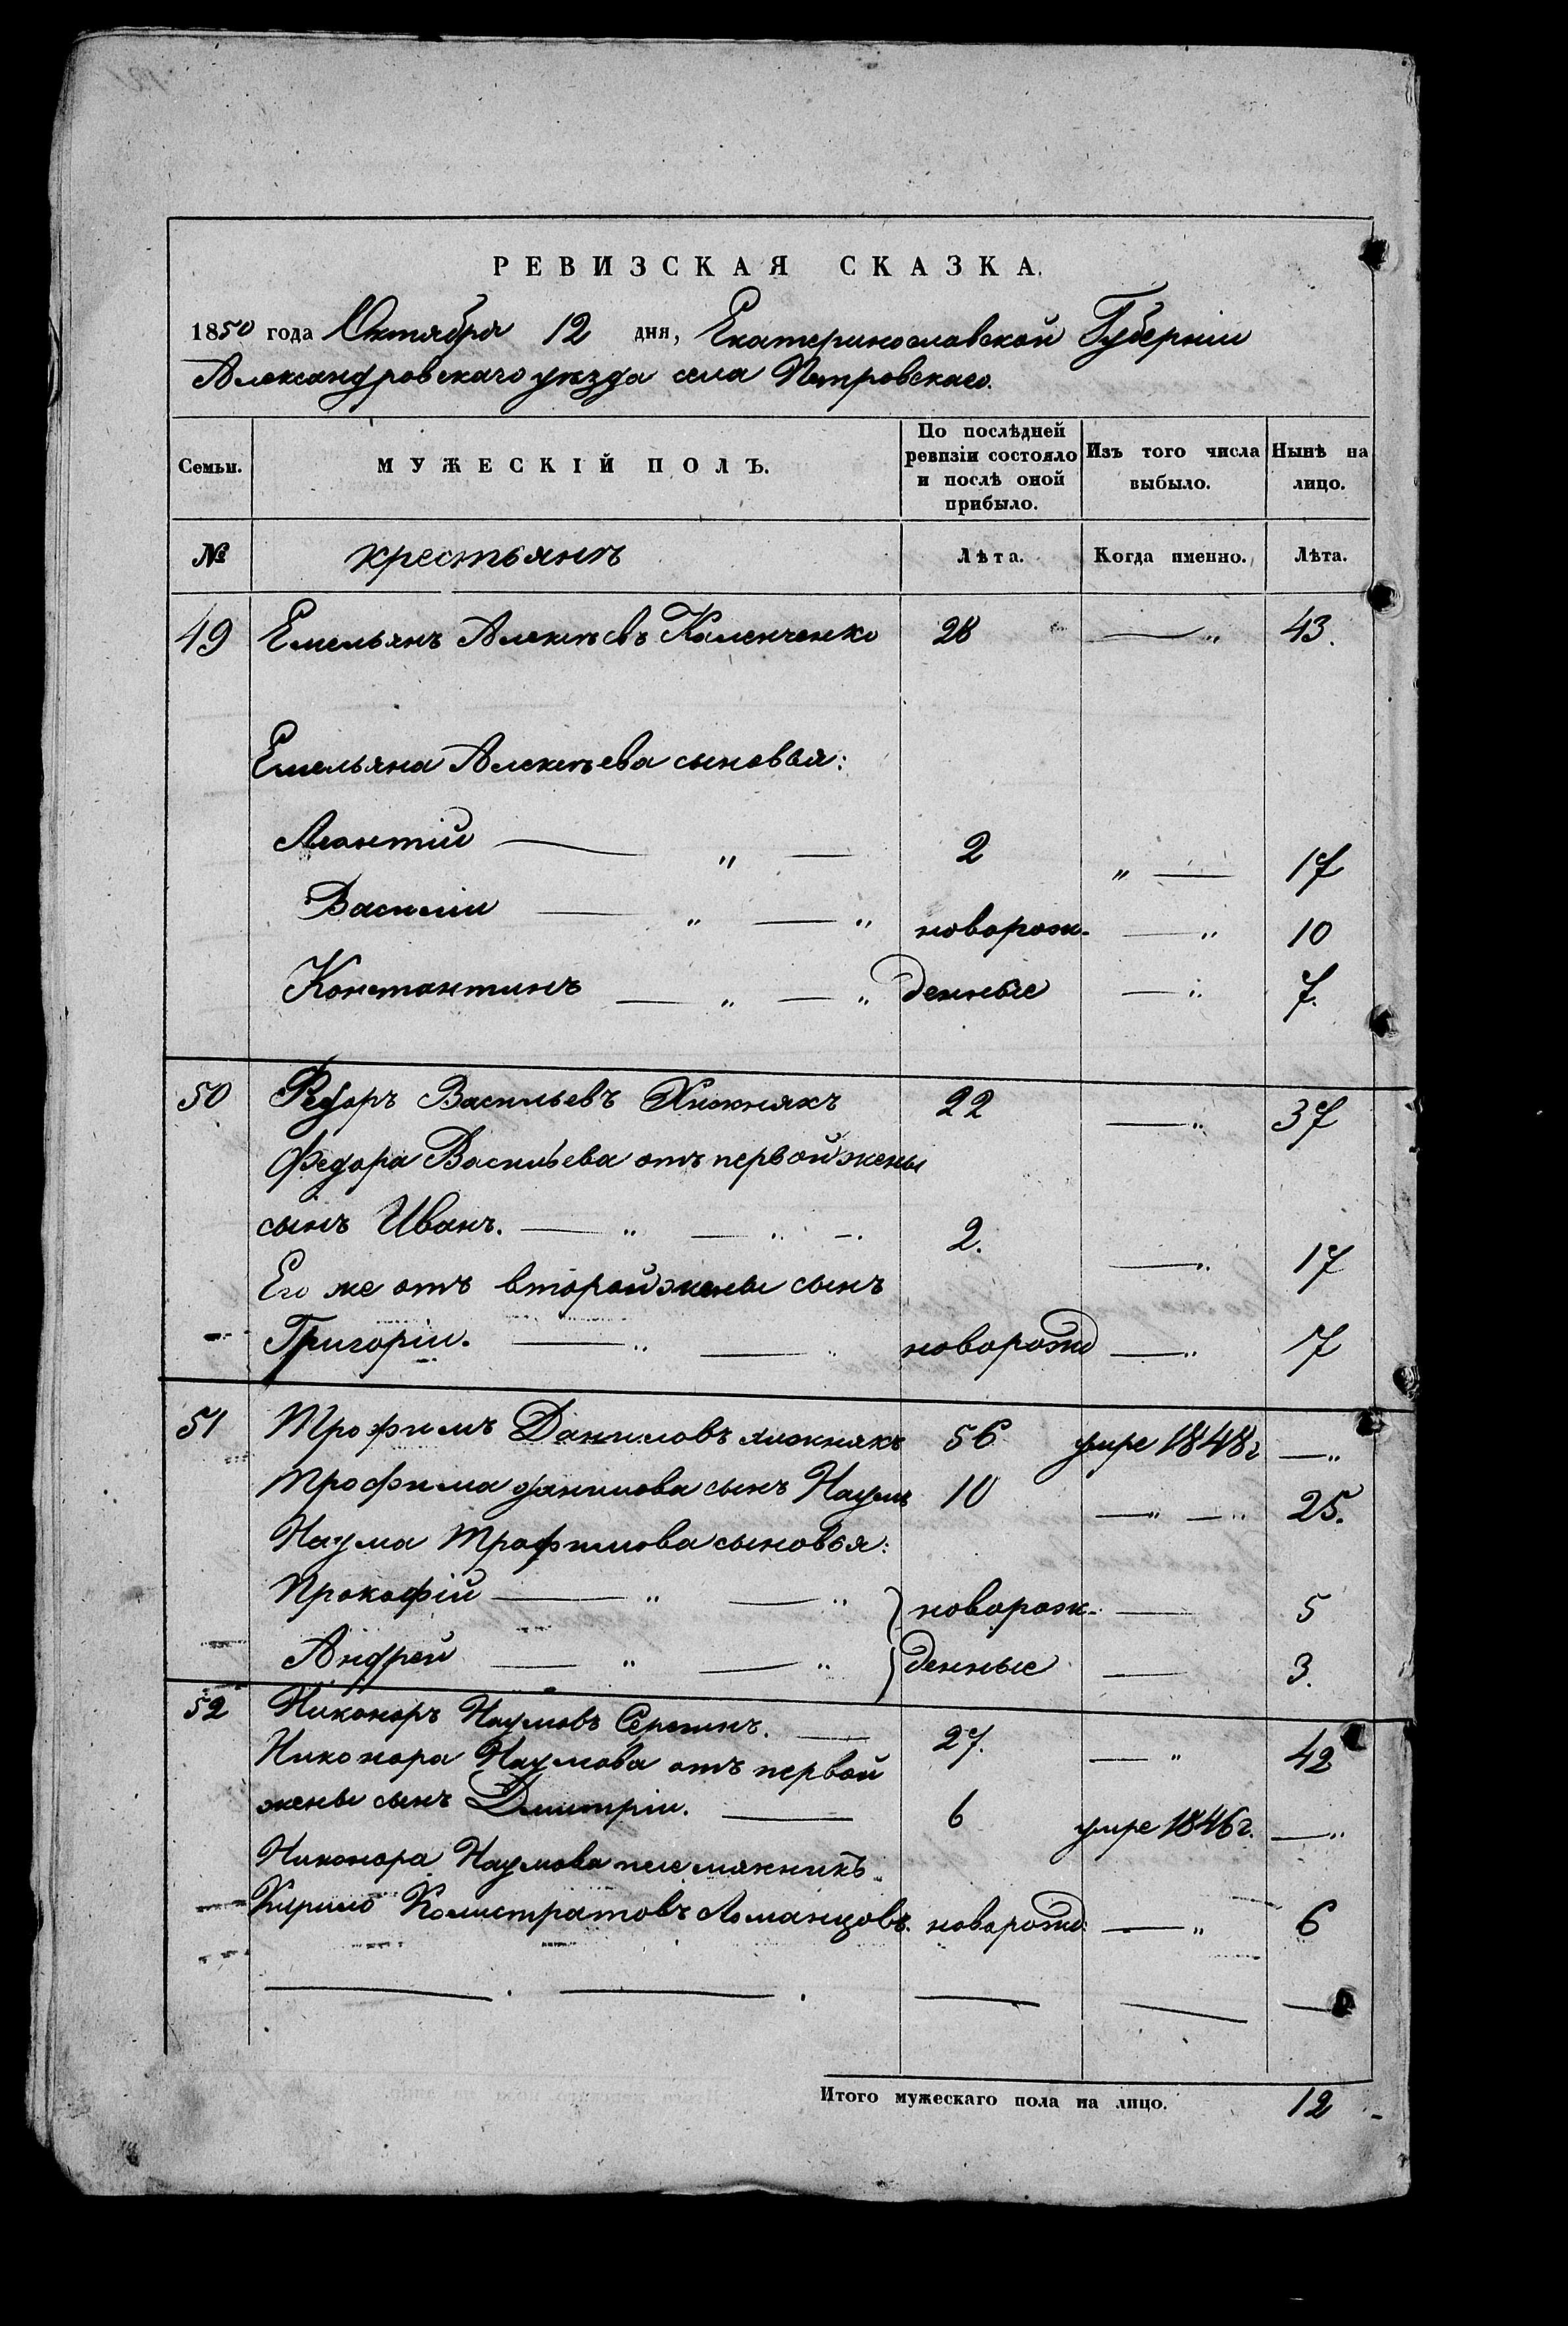 РЕВИЗСКАЯ СКАЗКА.
1850 года Октября 12 дня, Екатеринославской Губерніи
Александровскаго уѣзда села Петровскаго.
Семьи. МУЖЕСКІЙ ПОЛЪ. По послѣдней ревизіи состояло и послѣ оной прибыло. Изъ того числа выбыло. Нынѣ на лицо.
№ крестьянъ Лѣта. Когда именно. Лѣта.
49 Емельянъ Алексѣевъ Каленченко 28 — „ 43.
Емельяна Алексѣева сыновья:
Леонтій — „ — 2 „ — 17
Василіи — „ — „ новорож- — „ 10
Константинъ — „ — „ денные — „ 7.
50 Федоръ Васильевъ Хижнякъ 22 — „ 37
Федора Васильева отъ первой жены
сынъ Иванъ. — „ — „ — 2. — „ 17
Его же отъ второй жены сынъ
Григоріи. — „ — „ новорожд — „ 7
51 Трофимъ Даниловъ хижнякъ 56 умре 1848г — „
Трофима данилова сынъ Наумъ 10 — „ — „ 25.
Наума Трофимова сыновья:
Прокофій — „ — „ новорож- — 5
Андрей — „ — „ денные — 3.
52 Никоноръ Наумовъ — 27. — „ 42
Никонора Наумова отъ первой
жены сынъ Дмитріи. — 6 умре 1846г. — „
Никонора Наумова племянникъ
Кирило Калистратовъ Ломанцовъ. новорожд: — „ 6
— . — . — — —
Итого мужескаго пола на лицо. 12